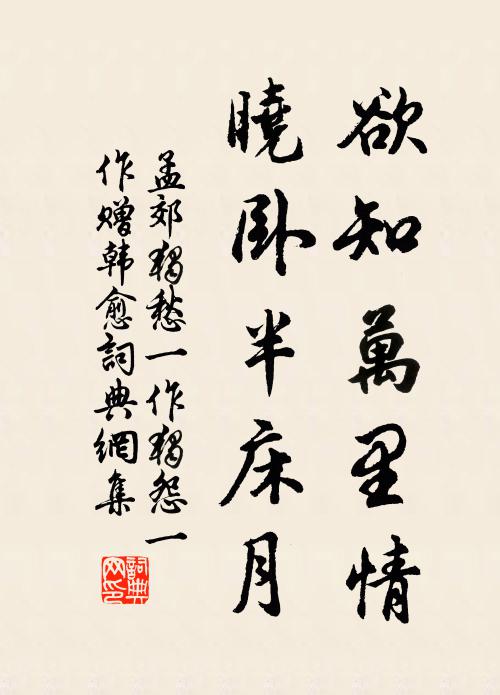 欲知萬里情
曉卧半床月
孟郊獨愁一作獨怨一
作赠韩愈詞典網集
詞典
网印